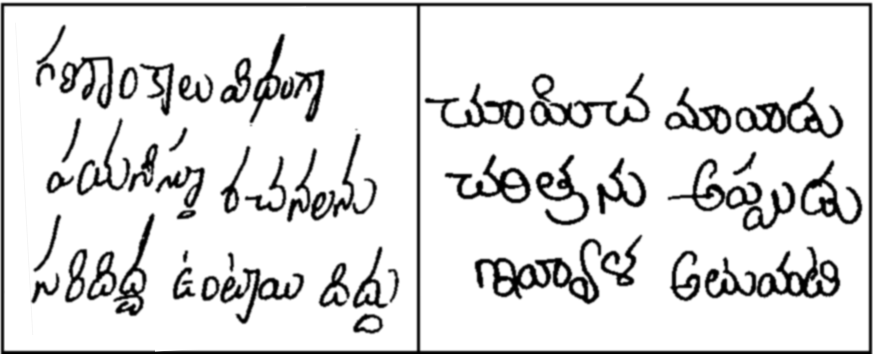 గణాంకాలు విధంగా
పయనిస్తూ రచనలను
సరిదిద్ద ఉంటాయి దిద్దు
చూపించ మాయిడు
చరిత్రను అప్పుడు
అటువంటి